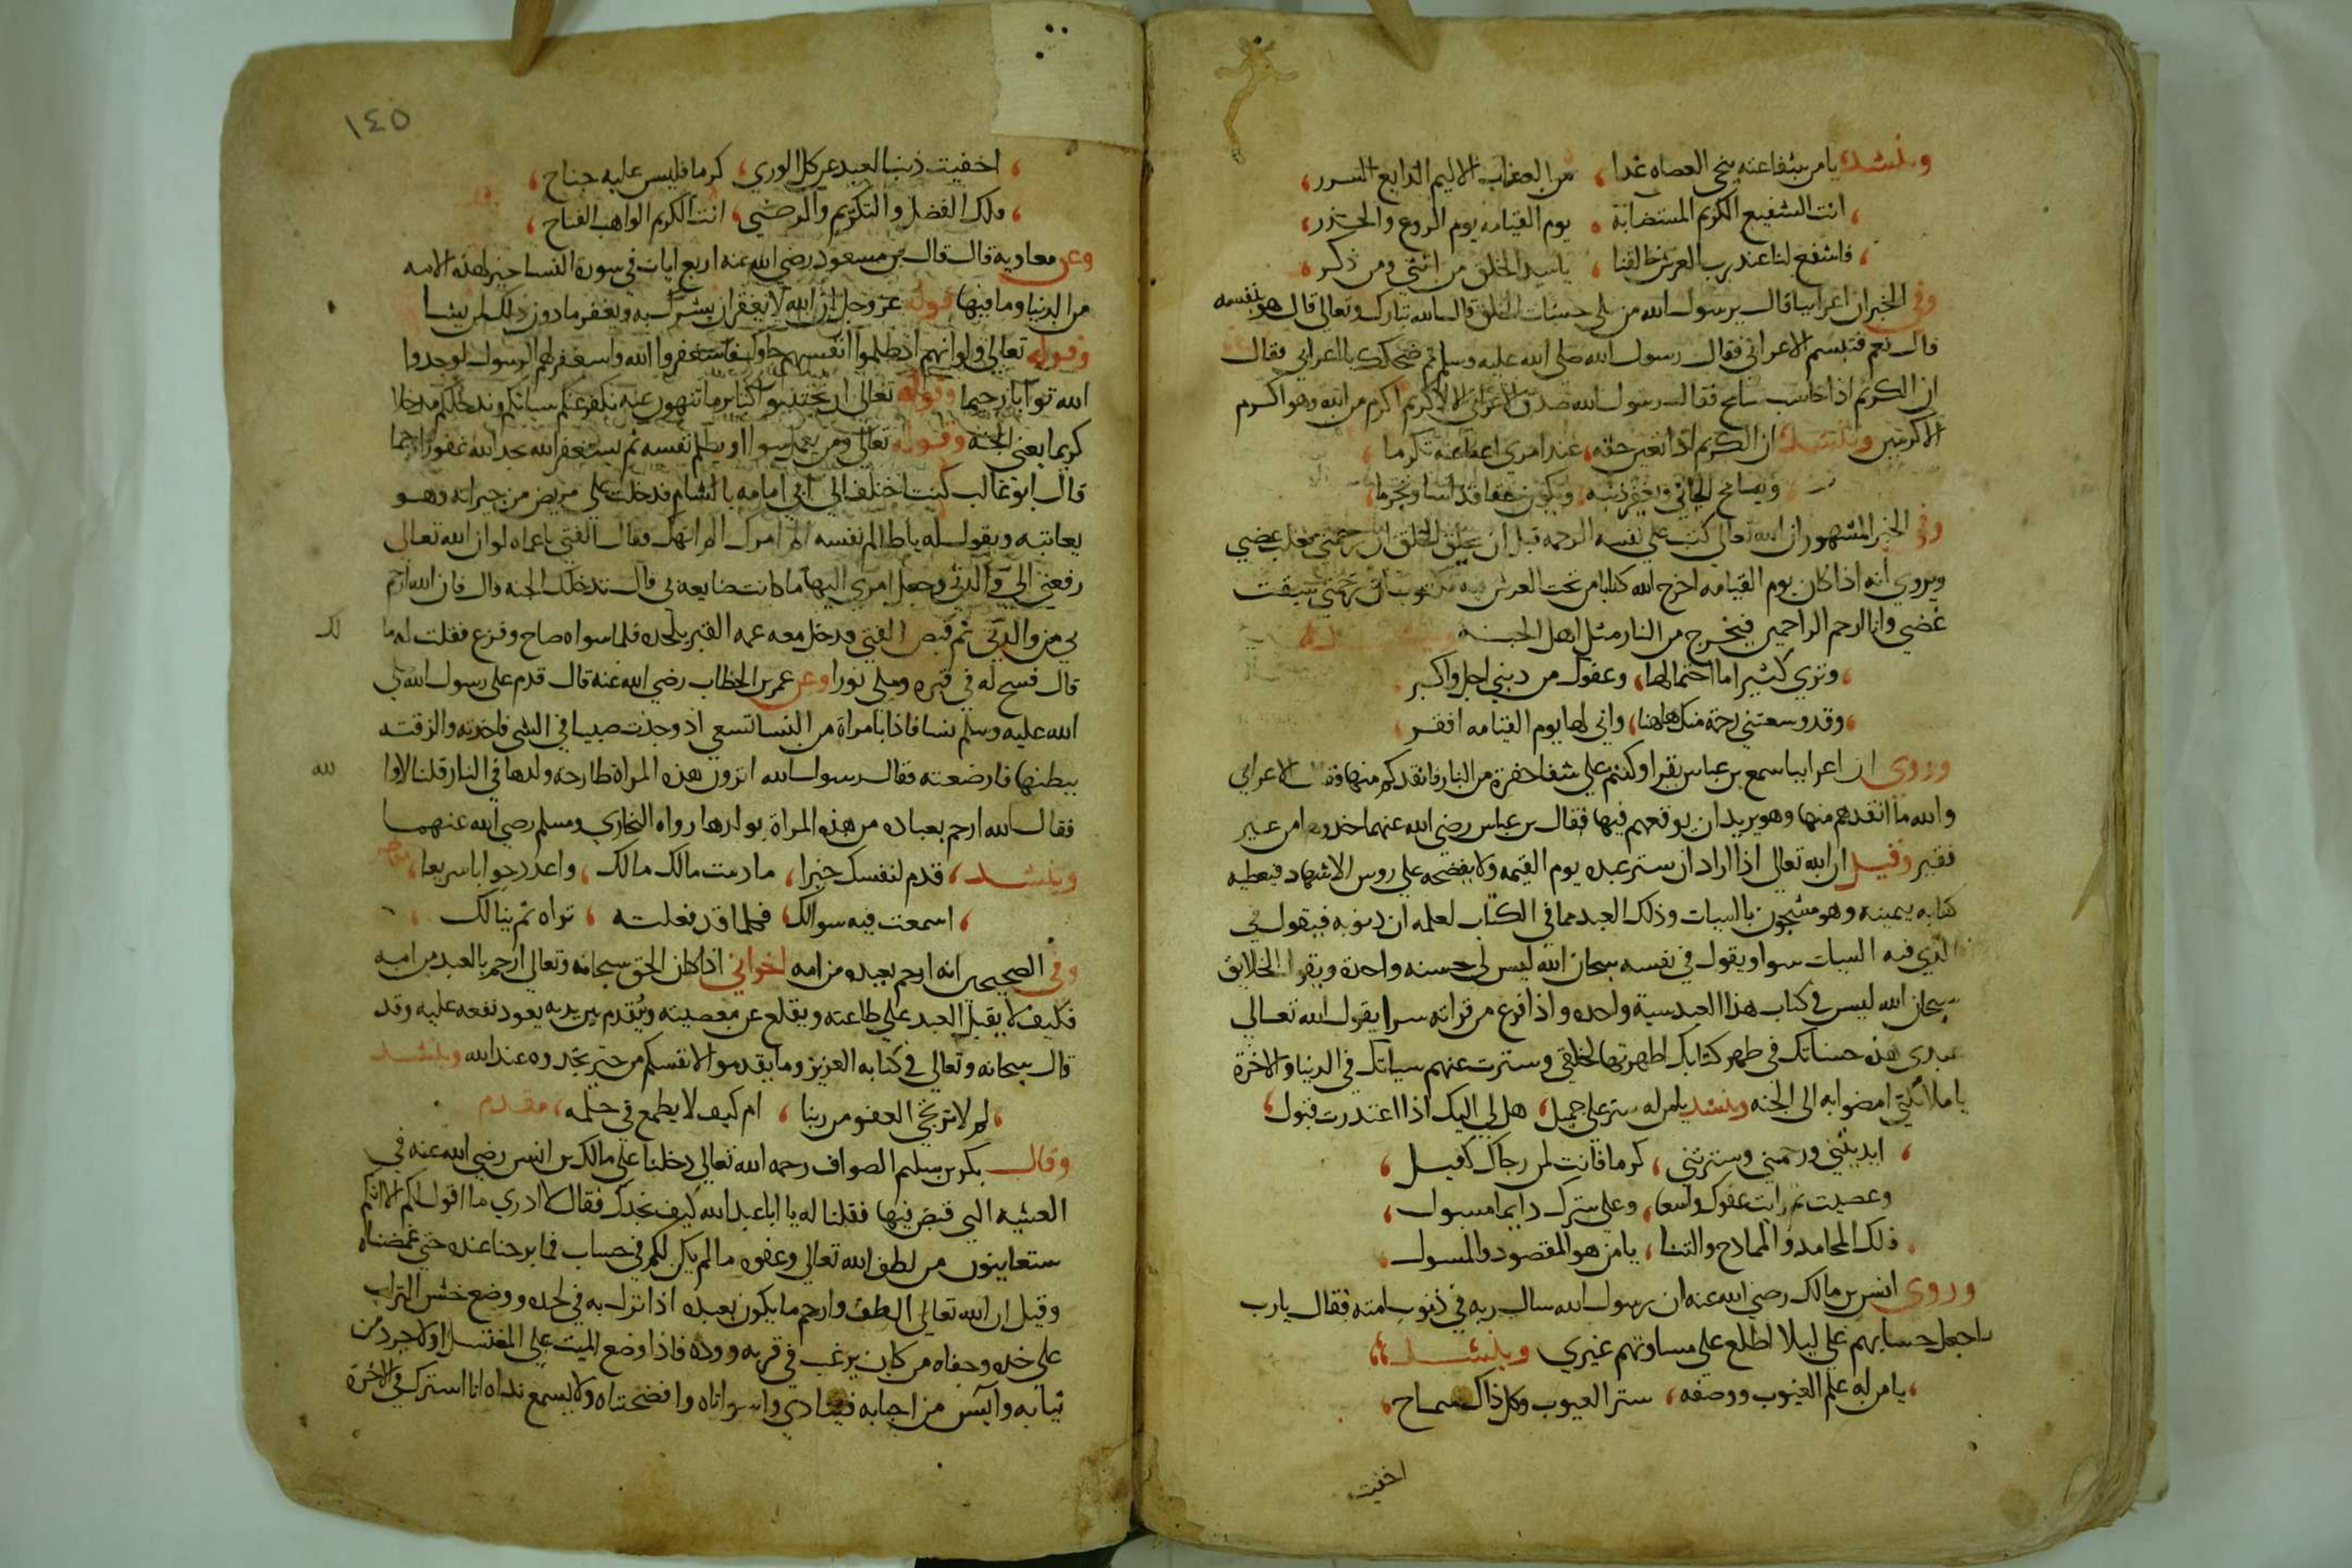 وينشد يا من بشفاعته ينجي العصاه غدا ، من العذاب الاليم الذايع الشرر ،
، انت الشفيع الكريم المستضابة ، يوم القيامه يوم الروع والحذر ،
، فاشفع لنا عند رب العرش خالقنا ، يا سيد الخلق من انثي ومن ذكر ،
وفي الخبر ان اعرابيا قال يرسول الله من يلي حسنات الخلق قال الله تبارك وتعالى قال هو بنفسه
قال نعم فتبسم الاعرابي فقال رسول الله صلى الله عليه وسلم مم ضحكك يا اعرابي فقال
ان الكريم اذا حاسب سامح فقال رسول الله صدق الاعرابي الا لا كريم اكرم من الله وهو اكرم
الاكرمين وينشد ان الكريم اذا تعين حقه ، عند امرئ اعفا عنه تكرما ،
ويسامح الجاني ويغفر ذنبه ، ويكون عفا قد اسا وتجرما ،
وفي الخبر المشهور ان الله تعالي كتب علي نفسه الرحمه قبل ان يخلق الخلق ان رحمتي تغلب غضبي
ويروي انه اذا كان يوم القيامه اخرج الله كتابا من تحت العرش فيه مكتوب ان رحمتي سبقت
غضبي وانا ارحم الراحمين فيخرج من النار مثل اهل الجنه
، وتري كثيرا ما احتمالها ، وعفوك من ذنبي اجل واكبر
، وقد وسعتني رحمة منك هاهنا ، واني لها يوم القيامه افقر
وروي ان اعرابيا سمع بن عباس يقرا وكنتم علي شفا حفرة من النار فانقدكم منها فقال الاعرابي
والله ما انقدهم منها وهو يريد ان يوقعهم فيها فقال بن عباس رضي الله عنهما خدوها من غير
فقيه وقيل ان الله تعالى اذا اراد ان ستر عبده يوم القيمه ولا يفضحه علي روس الاشهاد فيعطيه
كتابه بيمينه وهو مشحون بالسيات وذلك العبد مما في الكتاب لعلمه ان دنوبه فيقول في
الذي فيه السيات سوا ويقول في نفسه سبحان الله ليس لي حسنه واحدة ويقرا الخلايق
سبحان الله ليس في كتاب هذا العبد سية واحده واذا فرغ من قراته سرا يقول الله تعالي
عبدي هذه حسناتك في ظهر كتابك اظهرتها لخلقي وسترت عنهم سياتك في الدنيا والاخرة
يا ملائكتي امضوا به الى الجنه وينشد يا من له ستر علي جميل ، هل لي اليك اذا اعتدرت قبول ،
، ايديتني ورحمتني وسترتني ، كرما فانت لمن رجاك كفيل ،
وعصيت ثم رايت عفوك واسعا ، وعلي سترك دايما مسبول ،
، فلك المحامد والممادح والثنا ، يا من هو المقصود والمسول .
وروي انس بن مالك رضي الله عنه ان رسول الله سال ربه في ذنوب امته فقال يارب
اجعل حسابهم علي ليلا اطلع على مساويهم غيري وينشد ،،
، يا من له علم الغيوب ووصفه ، ستر العيوب وكل ذاك سماح ،
اخفيت
١٤٥
، اخفيت ذنب العبد عن كل الوري ، كرما فليس عليه جناح ،
، فلك الفضل والتكريم والرضي ، انت الكريم الواهب الفتاح ،
وعن معاويه قال قال بن مسعود رضي الله عنه اربع ايات في سورة النسا خير لهذه الامه
من الدنيا وما فيها قوله عز وجل ان الله لا يغفر ان يشرك به ويغفر ما دون ذلك لمن يشا
وقوله تعالي ولو انهم اذ ظلموا انفسهم جاوك فاستغفروا الله واستغفر لهم الرسول لوجدوا
الله توابا رحيما وقوله تعالى ان تجتنبوا كبائر ما تنهون عنه نكفر عنكم سياتكم وندخلكم مدخلا
كريما يعني الجنة وقوله تعالى ومن يعمل سوا او يظلم نفسه ثم يستغفر الله يجد الله غفورا رحيما
قال ابو غالب كنت اختلف الي ابي امامه بالشام فدخلت علي مريض من جيرانه وهو
يعاتبه ويقول له يا ظالم نفسه الم امرك الم انهك فقال الفتي يا عماه لو ان الله تعالى
رفعني الي والدتي وجعل امري اليها ما كانت صانعه بي قال تدخلك الجنه قال فان الله ارحم
بي من والدتي ثم قبض الفتي فدخل معه عمه القبر يلحده فلما سواه صاح وفزع فقلت له ما
لك
قال فسح له في قبره وملي نورا وعن عمر بن الخطاب رضي الله عنه قال قدم على رسول الله صلي
الله عليه وسلم نسا فاذا بامراة من النسا تسعي اذ وجدت صبيا في السبي فاخذته والزقته
ببطنها فارضعته فقال رسول الله اترون هذه المراة طارحة ولدها في النار قلنا لا وا
لله
فقال الله ارحم بعباده من هذه المراة بولدها رواه البخاري ومسلم رضي الله عنهما
وينشد ، قدم لنفسك خيرا ، مادمت مالك مالك ، واعدد جوابا سريعا ،
، اسمعت فيه سوالك فكلما قد فعلت ، تراه ثم ينالك ،
وفي الصحيحين انه ارحم بعبده من امه اخواني اذا كان الحق سبحانه وتعالي ارحم بالعبد من امه
فكيف لا يقبل العبد علي طاعته ويقلع عن معصيته ويقدم بين يديه يعود نفعه عليه وقد
قال سبحانه وتعالي في كتابه العزيز وما يقدموا لانفسكم من خير تجدوه عند الله وينشد
، لم لا ترتجي العفو من ربنا ، ام كيف لا يطمع في حلمه ،
وقال بكر بن سليم الصواف رحمه الله تعالي دخلنا علي مالك بن انس رضي الله عنه في
العشيه التي قبض فيها فقلنا له يا ابا عبد الله كيف تجدك فقال لا ادري ما اقول لكم الا انكم
ستعاينون من لطف الله تعالي وعفوه ما لم يكن لكم في حساب فما برحنا عنده حتي غمضناه
وقيل ان الله تعالي الطف وارحم ما يكون بعبده اذا نزل به في لحده ووضع خشن التراب
علي خده وجفاه من كان يرغب في قربه ووده فاذا وضع الميت علي المغتسل اولا جرد من
ثيابه وآيس من احبابه فينادي واسواتاه وافضحتاه ولا يسمع نداه انا استرك في الاخرة